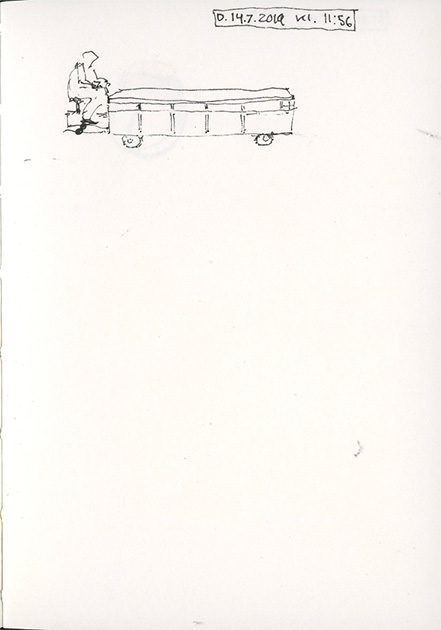 D. 14.7.2019 kl. 11:56